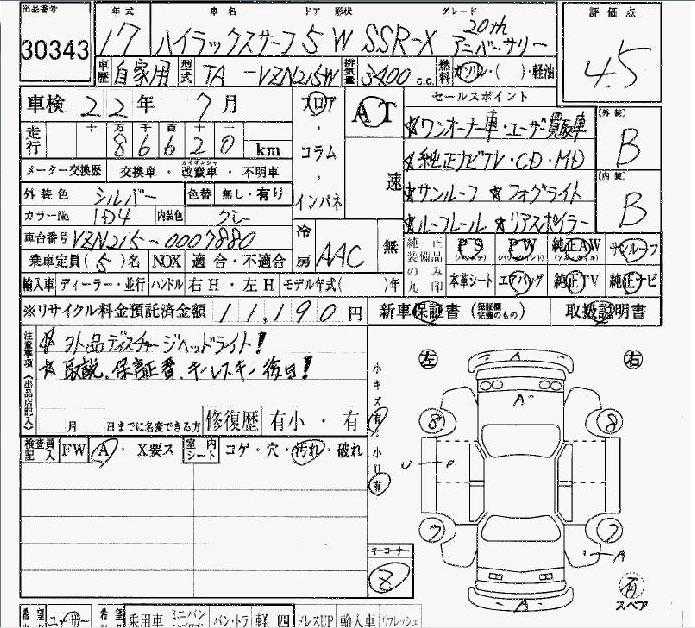 出品番号 年式 車名 ドア 形状 グレード 評価点
30343 17 ハイラックスサーフ 5W SSR-X 20th アニバーサリー 4.5
車歴 自家用 型式 TA-VZN215W 排気量 3400 c.c. 燃料 ガソリン・( )・軽油
車検 22年 7月 フロア・コラム・インパネ AT 速 セールスポイント
走行 十 万 千 百 十 86620 km
★ワンオーナー車・ユーザー買取車 (外装) B
メーター交換歴 交換車・改竄車・不明車
★純正ナビTV・CD・MD
外装色 シルバー 色替 無し・有り
★サンルーフ ★フォグライト (内装) B
カラーNo. 1D4 内装色 グレー
★ルーフレール ★リアスポイラー
車台番号 VZN215-0007880 冷房 AAC 無
純正装備品のみ○印 PS PW 純正AW サンルーフ
乗車定員 (5)名 NOX 適合・不適合
本革シート エアバッグ 純正TV 純正ナビ
輸入車 ディーラー・並行 ハンドル 右H・左H モデル年式( )年
※リサイクル料金預託済金額 11,190円 新車保証書 取扱説明書
注意事項(出品店記入)
★外品ディスチャージヘッドライト!
★取説、保証書、キーレスキー後日!
月 日までに名変できる方 修復歴 有小・有
小キズ有 小凹有
検査員記入 FW A・X要ス 室内シート コゲ・穴・汚れ・破れ
コーナー
左 右
A
A
8 8
U P
7 7
A
A
有 スペア
希望 ユーザー 希望 乗用車 ミニバン バン・トラ 軽四 ドレスUP 輸入車 リフレッシュ